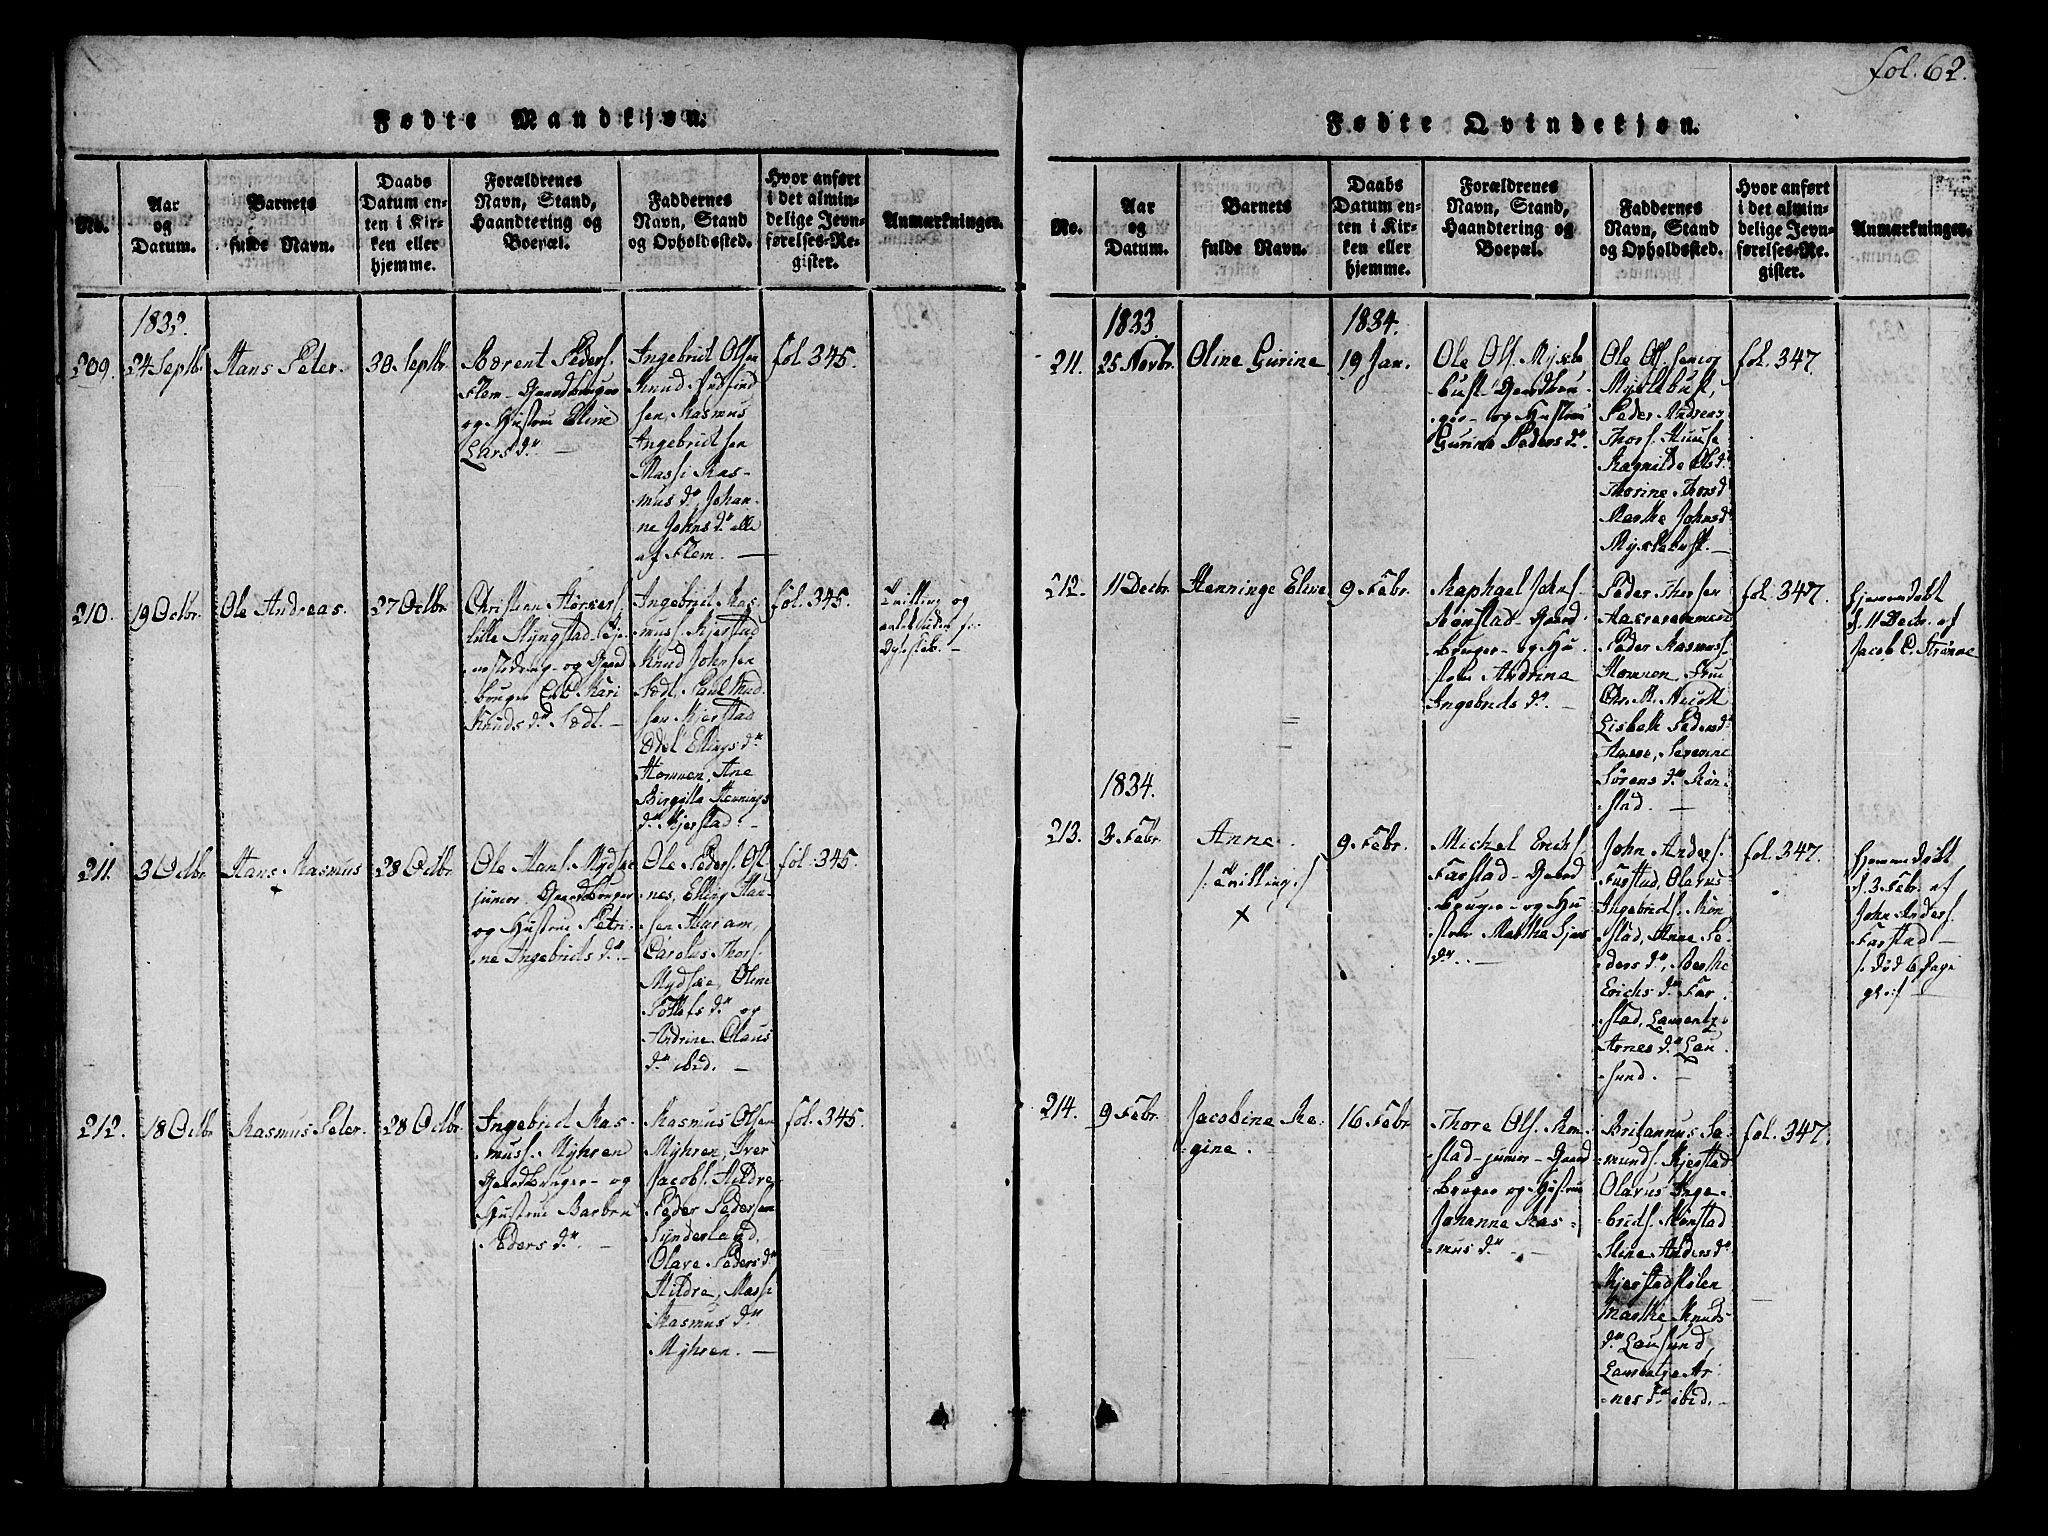 fol. 62.
Fødte Mandkjøn.
No.
Aar
og
Datum.
Barnets
fulde Navn.
Daabs
Datum en-
ten i Kir-
ken eller
hjemme.
Forældrenes
Navn, Stand,
Haandtering og
Boepæl.
Faddernes
Navn, Stand
og Opholdssted.
Hvor anført
i det almin-
delige Jevn-
førelses-Re-
gister.
Anmærkninger.
209.
24 Septbr.
Hans Peter.
30 Septbr
Bærent Peders.
Flem - Gaardbruger
og Hustrue Eline
Lars dr. -
Ingebrict Olsen
Knud
sen, Rasmus
Ingebrictsen
Massi Ras-
mus dr, Johan-
ne Johns dr alle
af Flem. -
fol 345.
210.
19 Octbr.
Ole Andreas.
27 Octbr
Christian
lille
og Gaard
bruger Enke Kari
Knuds dr Sædt. -
Ingebrict Ras-
muss. Kjerstad
Knud Johnsen
Sædt, Paul Knud
sen Kjerstad
Edel Ellings dr
Hømmen, Ane
Birgitta Hennings
dr Kjerstad. -
fol. 345.
Tvilling og
211.
3 Octbr
Hans Rasmus
+
28 Octbr
Ole Hans. Mydsæ
junior Gaardbruger
og Hustrue Petri-
ne Ingebricts dr -
Ole Peders. Ol-
nes, Elling Han-
sen Auram,
Carolus Thors.
Mydsæe, Oline
Tollefs dr og
Andrine Olaus
dr ibid. -
fol. 345.
212.
18 Octbr
Rasmus Peter.
28 Octbr.
Ingebrict Ras-
muss. Myhren
Gaardbruger - og
Hustrue Barbra
Peders dr. -
Rasmus Olsen
Myhren, Iver
Jacobs. Hildre
Peder Pedersen
Synderland,
Olave Peders dr
Hildre, Massi
Rasmus dr
Myhren. -
fol. 345.
Fødte Qvindekjøn.
No.
Aar
og
Datum.
Barnets
fulde Navn.
Daabs
Datum en-
ten i Kir-
ken eller
hjemme.
Forældrenes
Navn, Stand,
Haandtering og
Boepæl.
Faddernes
Navn, Stand
og Opholdssted.
Hvor anført
i det almin-
delige Jevn-
førelses-Re-
gister.
Anmærkninger.
1833
1834.
211.
25 Novbr.
Oline Gurine
19 Jan.
Ole Ols. Myxle
bust - Gaardbru-
ger - og Hustrue
Gurine Peders dr.
Ole Ols. senior
Myxlebust,
Peder Andreas
Thors. Huuse
Ragnilde Ols dr
Thorine Thors d
Marthe Johns dr
Myxlebust. -
fol. 347
212.
11 Decbr.
Henninge Eline
9 Febr.
Raphael Johns.
Rønstad - Gaard
bruger - og Hu-
strue Andrine
Ingebricts dr. -
Peder Thorsen
Peder Rasmuss.
Hømmen, Frue
Chr. M.
Lisbeth Peders dr
Severine
Sørens dr Røn-
stad. -
fol. 347.
Hjemmedøbt
d. 11 Decbr. af
Jacob C. Strømme
1834.
213.
3 Febr.
Anne.
/: Tvilling :/
+
9 Febr.
Michel Erichs.
Farstad - Gaard
bruger - og Hu-
strue Marthe
dr. -
John Anders.
Farstad, Olarus
Ingebricts. Røn
stad, Anne Pe-
ders dr, Berthe
Erichs dr Far-
stad, Laurentze
Arnes dr Lau-
sund. -
fol. 347.
Hjemmedøbt
d. 3 Febr. af
John Anders.
Farstad -
/: død 6 Dage
gl: :/ -
214.
9 Febr.
Jacobine Re-
gine.
16 Febr.
Thore Ols. Røn-
stad - junior - Gaard
bruger og Hustrue
Johanne Ras-
mus dr. -
Britannus Se-
munds. Kjerstad
Olarus Inge-
bricts. Rønstad
Stine Anders dr
Kjerstadstølen
Marthe Knuds
dr Lausund,
Laurentze Ar-
nes dr ibid. -
fol. 347.